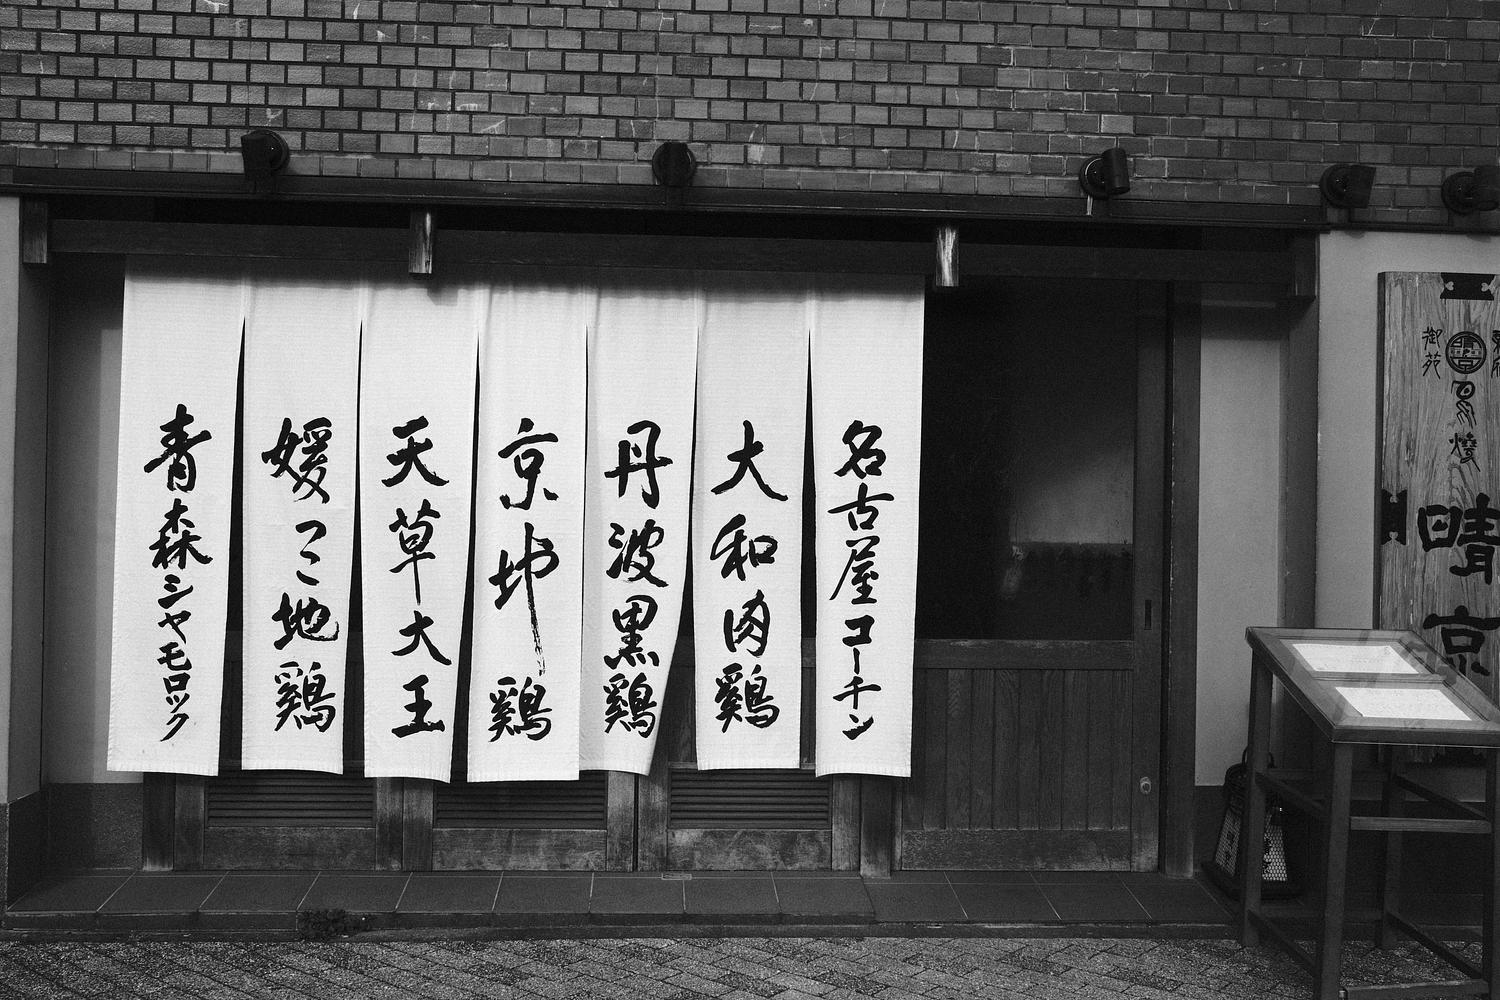 名古屋コーチン
大和肉鶏
丹波黒鶏
京地鶏
天草大王
媛っこ地鶏
青森シャモロック
御苑
鳥焼
晴京